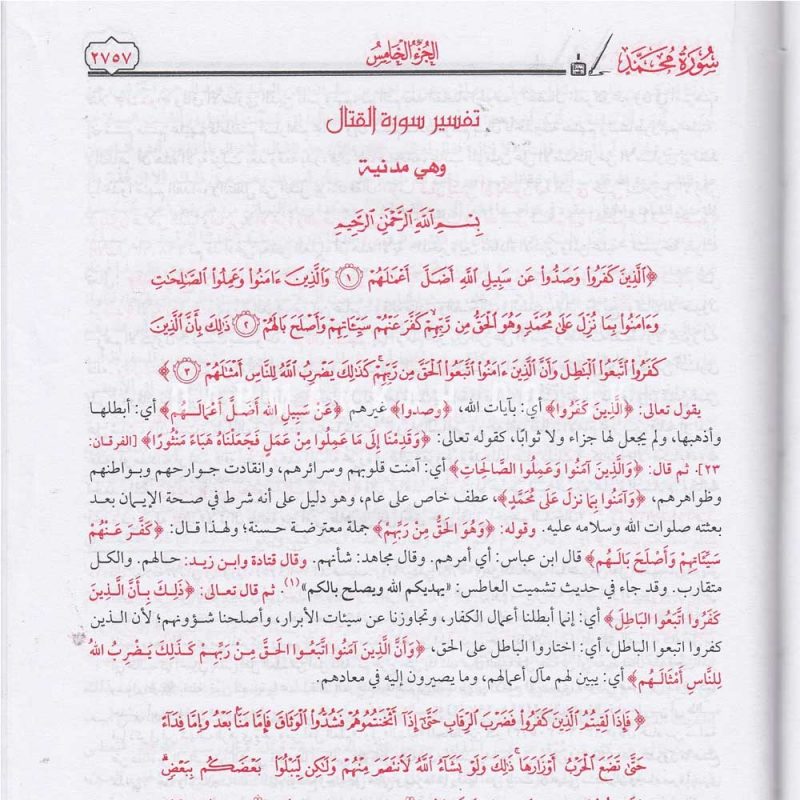 سُورَةُ مُحَمَّد
الجُزْءُ الخَامِسُ
٢٧٥٧
تفسير سورة القتال
وهي مدنية
بِسْمِ اللَّهِ الرَّحْمَٰنِ الرَّحِيمِ
﴿الَّذِينَ كَفَرُوا۟ وَصَدُّوا۟ عَن سَبِيلِ اللَّهِ أَضَلَّ أَعْمَٰلَهُمْ ۝١ وَالَّذِينَ ءَامَنُوا۟ وَعَمِلُوا۟ الصَّٰلِحَٰتِ
وَءَامَنُوا۟ بِمَا نُزِّلَ عَلَىٰ مُحَمَّدٍ وَهُوَ الْحَقُّ مِن رَّبِّهِمْ كَفَّرَ عَنْهُمْ سَيِّـَٔاتِهِمْ وَأَصْلَحَ بَالَهُمْ ۝٢ ذَٰلِكَ بِأَنَّ الَّذِينَ
كَفَرُوا۟ اتَّبَعُوا۟ الْبَٰطِلَ وَأَنَّ الَّذِينَ ءَامَنُوا۟ اتَّبَعُوا۟ الْحَقَّ مِن رَّبِّهِمْ كَذَٰلِكَ يَضْرِبُ اللَّهُ لِلنَّاسِ أَمْثَٰلَهُمْ ۝٣﴾
يقول تعالى: ﴿الَّذِينَ كَفَرُوا﴾ أي: بآيات الله، ﴿وصدوا﴾ غيرهم ﴿عَنْ سَبِيلِ اللهِ أَضَلَّ أَعْمَالَـهُمْ﴾ أي: أبطلها
وأذهبها، ولم يجعل لها جزاء ولا ثوابًا، كقوله تعالى: ﴿وَقَدِمْنَا إِلَى مَا عَمِلُوا مِنْ عَمَلٍ فَجَعَلْنَاهُ هَبَاءً مَنْثُورًا﴾ [الفرقان:
٢٣]. ثم قال: ﴿وَالَّذِينَ آمَنُوا وَعَمِلُوا الصَّالِحَاتِ﴾ أي: آمنت قلوبهم وسرائرهم، وانقادت جوارحهم وبواطنهم
وظواهرهم، ﴿وَآمَنُوا بِمَا نُزلَ عَلَى مُحَمَّدٍ﴾، عطف خاص على عام، وهو دليل على أنه شرط في صحة الإيمان بعد
بعثته صلوات الله وسلامه عليه. وقوله: ﴿وَهُوَ الْحَقُّ مِنْ رَبِّهِمْ﴾ جملة معترضة حسنة؛ ولهذا قال: ﴿كَفَّرَ عَنْهُمْ
سَيِّئَاتِهِمْ وَأَصْلَحَ بَالَـهُمْ﴾ قال ابن عباس: أي أمرهم. وقال مجاهد: شأنهم. وقال قتادة وابن زيد: حالهم. والكل
متقارب. وقد جاء في حديث تشميت العاطس: «يهديكم الله ويصلح بالكم»(١). ثم قال تعالى: ﴿ذَلِكَ بِأَنَّ الَّذِينَ
كَفَرُوا اتَّبَعُوا الْبَاطِلَ﴾ أي: إنما أبطلنا أعمال الكفار، وتجاوزنا عن سيئات الأبرار، وأصلحنا شؤونهم؛ لأن الذين
كفروا اتبعوا الباطل، أي: اختاروا الباطل على الحق، ﴿وَأَنَّ الَّذِينَ آمَنُوا اتَّبَعُوا الْحَقَّ مِنْ رَبِّهِمْ كَذَلِكَ يَضْرِبُ اللهُ
لِلنَّاسِ أَمْثَالَـهُمْ﴾ أي: يبين لهم مآل أعمالهم، وما يصيرون إليه في معادهم.
﴿فَإِذَا لَقِيتُمُ الَّذِينَ كَفَرُوا۟ فَضَرْبَ الرِّقَابِ حَتَّىٰٓ إِذَآ أَثْخَنتُمُوهُمْ فَشُدُّوا۟ الْوَثَاقَ فَإِمَّا مَنًّۢا بَعْدُ وَإِمَّا فِدَآءً
حَتَّىٰ تَضَعَ الْحَرْبُ أَوْزَارَهَا ۚ ذَٰلِكَ وَلَوْ يَشَآءُ اللَّهُ لَانتَصَرَ مِنْهُمْ وَلَٰكِن لِّيَبْلُوَا۟ بَعْضَكُم بِبَعْضٍ ۗ